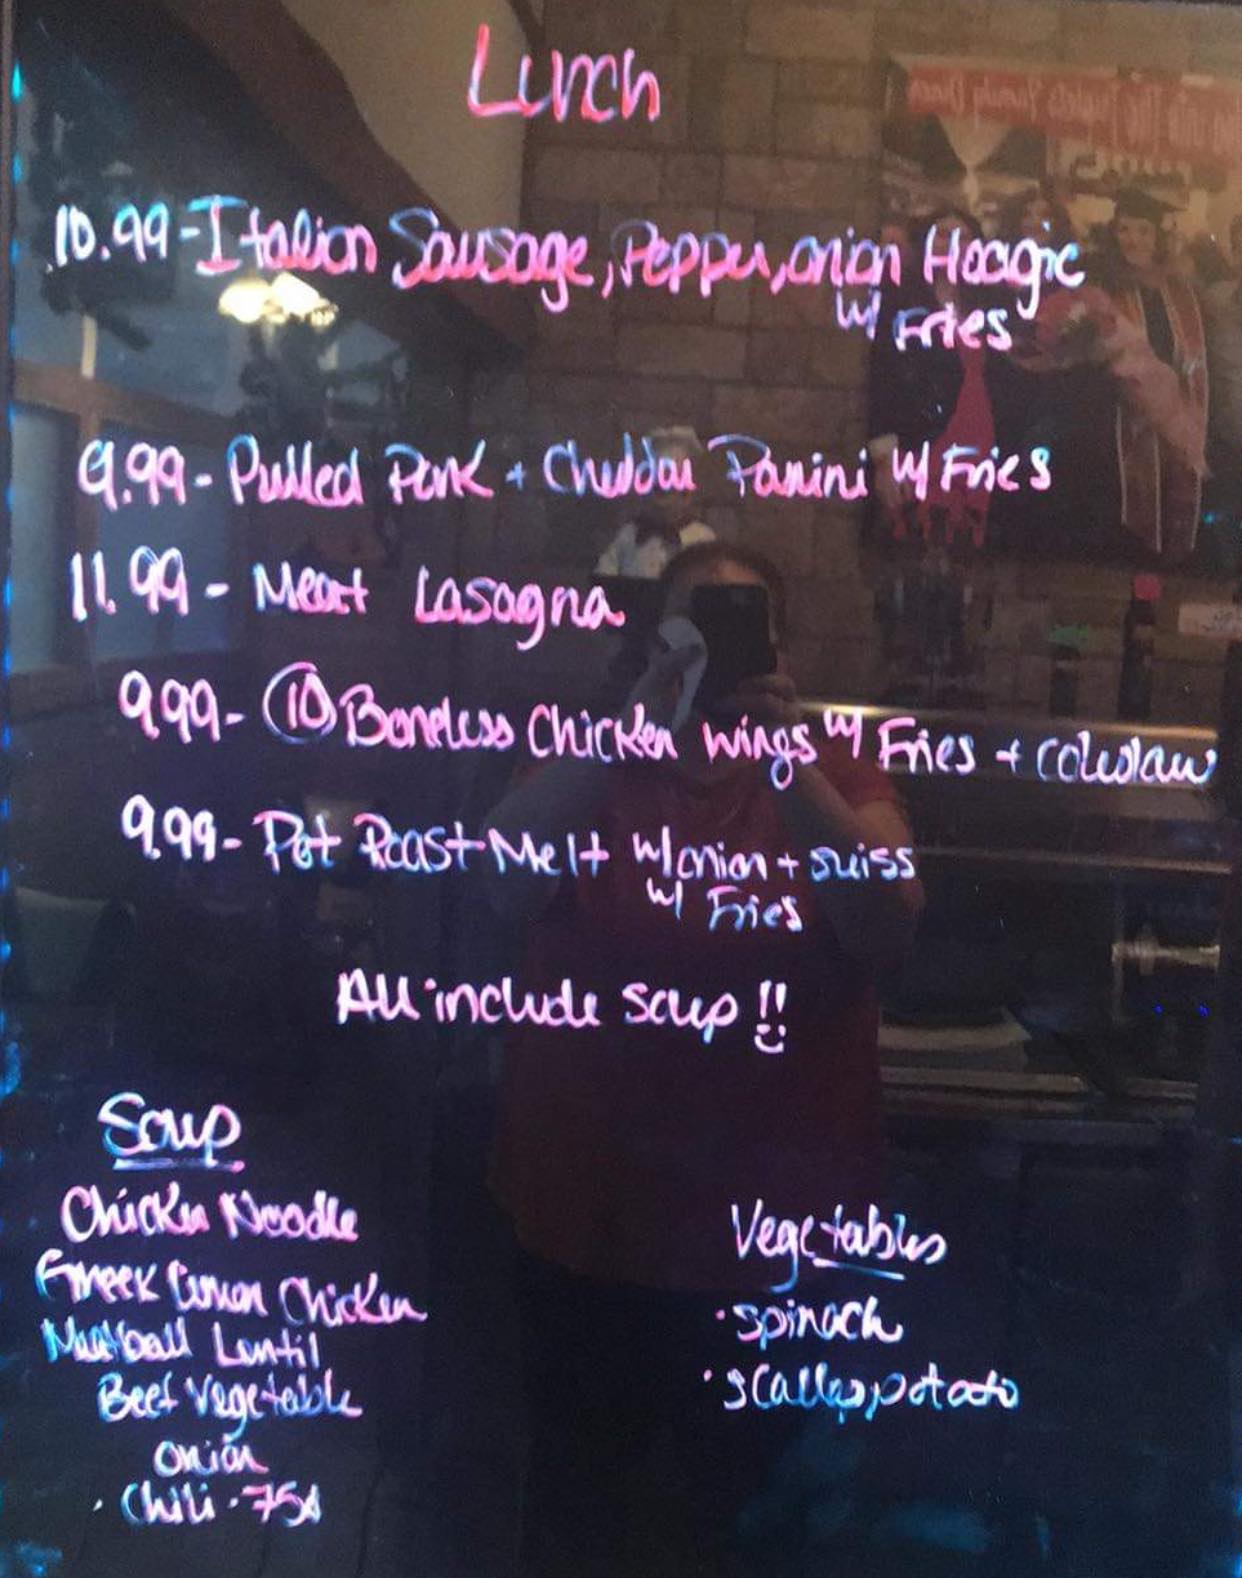 Lunch
10.99-Italian Sausage, Pepper, onion Hoagie
w/ Fries
9.99- Pulled Pork + Cheddar Panini w/ Fries
11.99- Meat Lasagna
9.99- 10 Boneless Chicken wings w/ Fries + coleslaw
9.99- Pot Roast Melt w/ onion + swiss
w/ Fries
All include soup !!
Soup
Chicken Noodle
Greek Lemon Chicken
Meatball Lentil
Beef Vegetable
onion
· Chili · 75¢
Vegetables
· spinach
· scallop potato